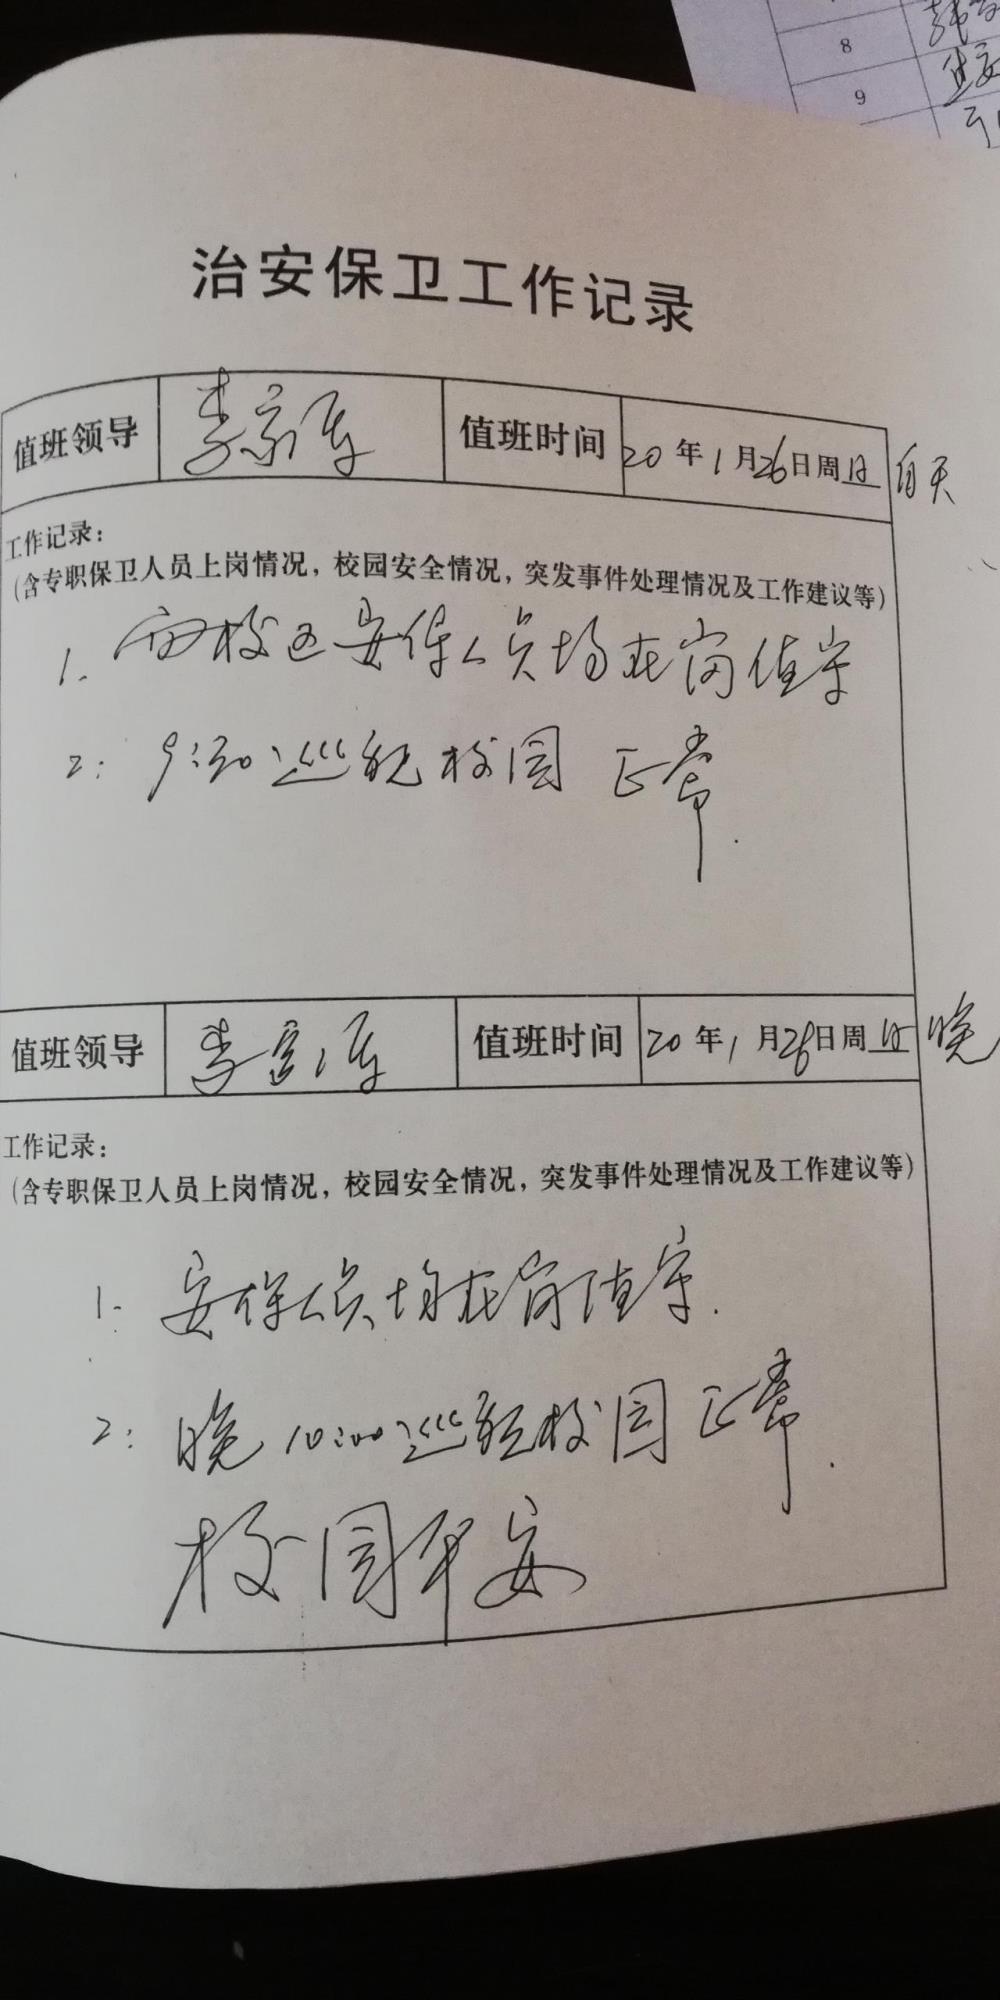 8
9
治安保卫工作记录
值班领导 李 值班时间 20年1月26日周日 白天
工作记录：
（含专职保卫人员上岗情况，校园安全情况，突发事件处理情况及工作建议等）
1. 两校区安保人员均在岗值守
2: 9:30巡视校园 正常.
值班领导 李 值班时间 20年1月26日周日 晚
工作记录：
（含专职保卫人员上岗情况，校园安全情况，突发事件处理情况及工作建议等）
1. 安保人员均在岗值守.
2: 晚10:00巡视校园正常.
校园平安